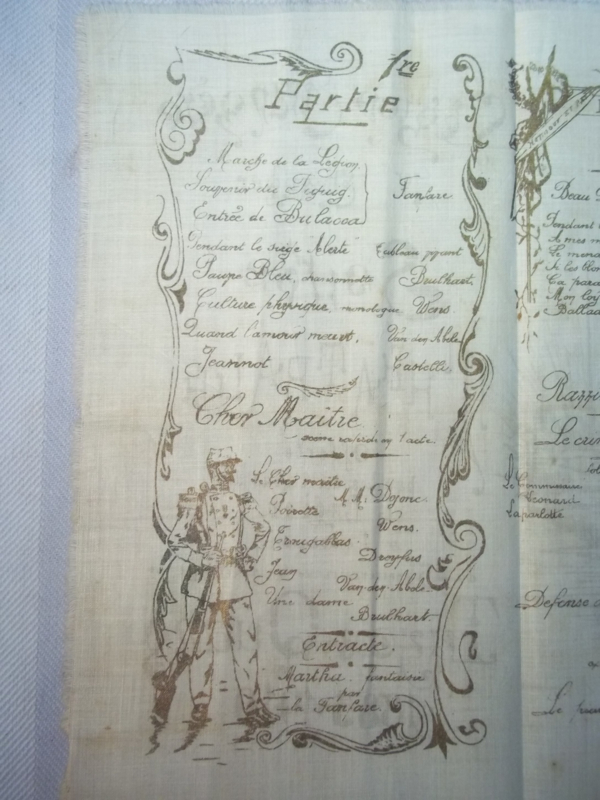 1re
Partie
Marche de la Légion
Souvenir du Fupug
Entrée de Bulacoa
Fanfare
Pendant le siège Alerte
Tableau vivant
Poupe Bleu, chansonnette Brulhart,
Culture physique, monologue Wens
Quand l'amour meurt, Van den Abèle
Jeannot Castelli
Cher Maitre
en 1 acte
Le Cher maître M.M. Dejonc
Poirette Wens.
Trougabbas Dreyfus
Jean Van-den-Abèle
Une dame Brulhart.
Entracte.
Martha fantaisie
par
la Fanfare.
Beau
Pendant
A mes
Le
Si les
Ca para
Mon
Ballad
Le
Le Commissaire
Léonard
Laparlotte
Défense
Le